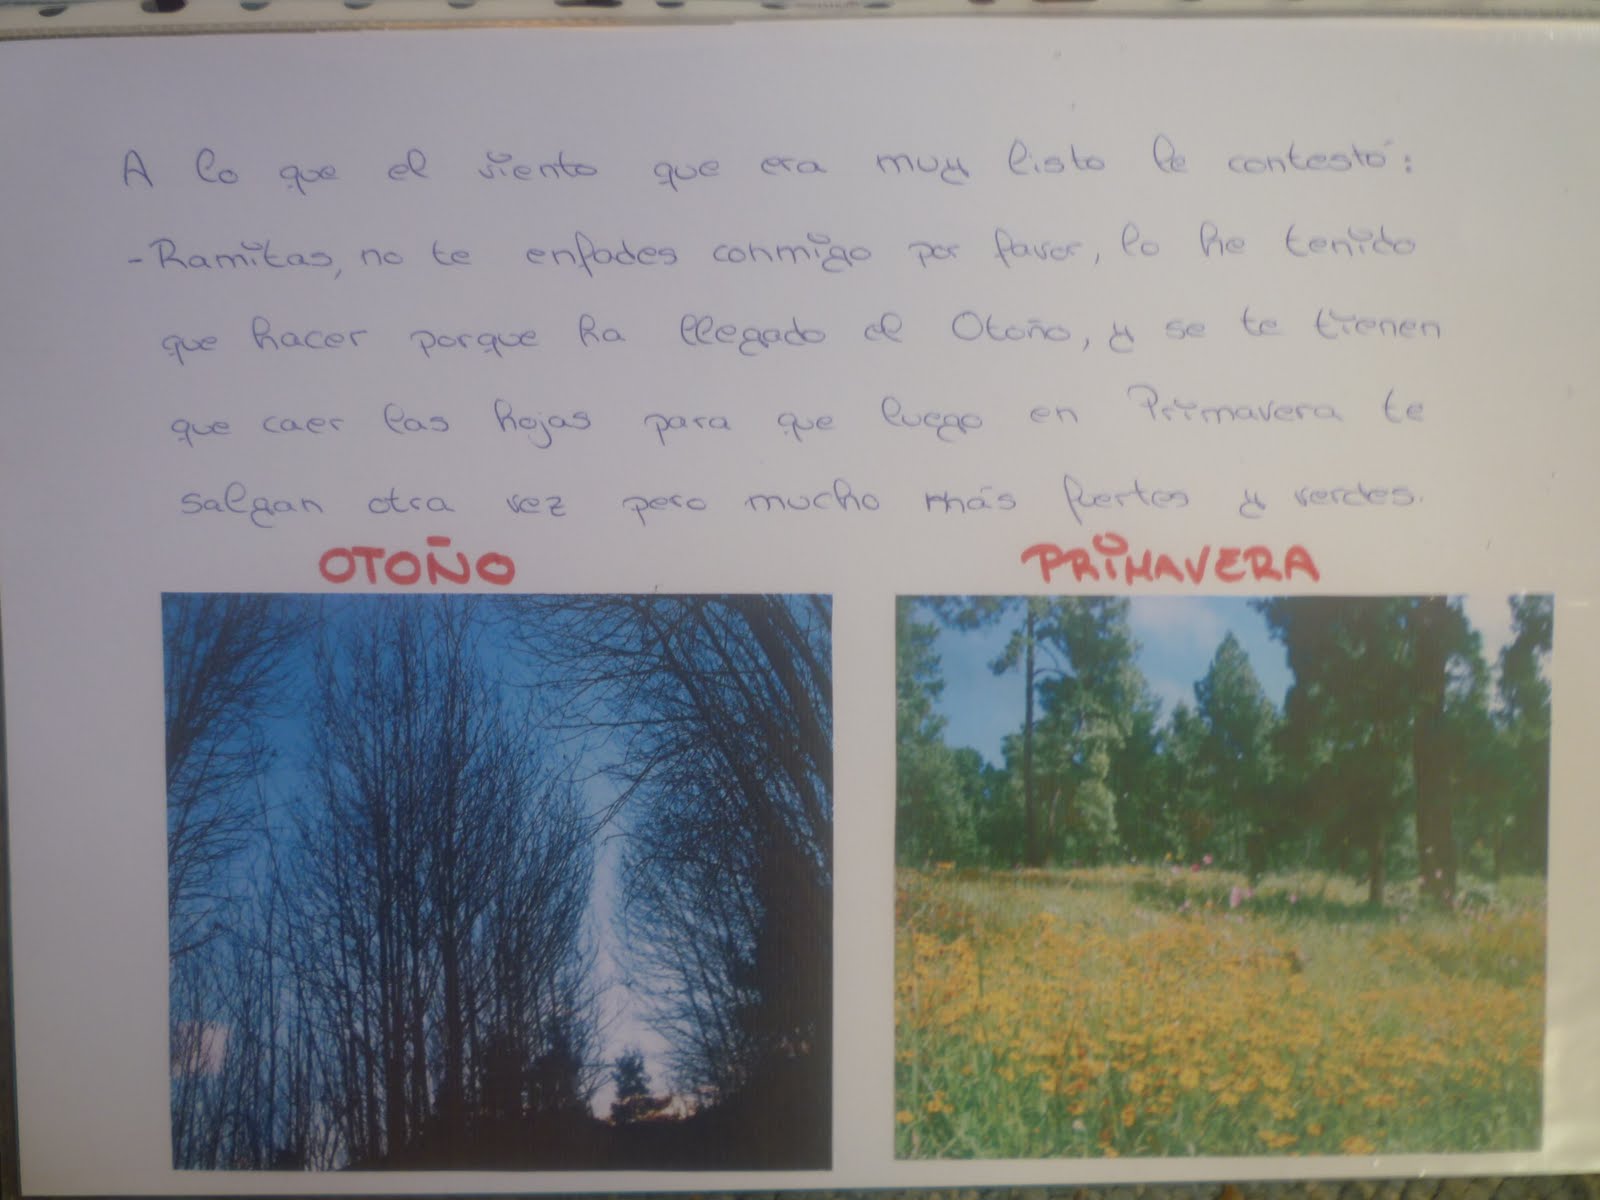 A lo que el viento que era muy listo le contestó:
-Ramitas, no te enfades conmigo por favor, lo he tenido
que hacer porque ha llegado el Otoño, y se te tienen
que caer las hojas para que luego en Primavera te
salgan otra vez pero mucho más fuertes y verdes.
OTOÑO
PRIMAVERA